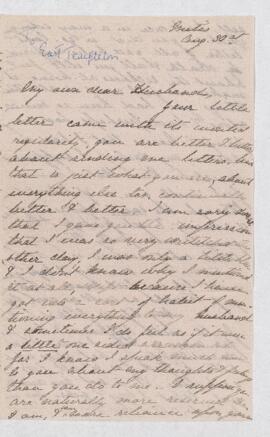 Aug. 30th
East Templeton
My own dear Husband,
Your little
letter came with its wonted
regularity, you are better & better
about sending me letters, and
that is just what you are, about
everything else too,
better & better. I am sorry
that I gave you the impression
that I was so very
other day, I was only a little
& I don't know why I mentioned
it at all, because I have
got into a sort of habit of men-
tioning everything to my husband
& sometimes I do feel as if it were
a little one sided
far. I know I speak much more
to you about my thoughts &
than you do to me. I suppose you
are naturally more reserved than
I am, & more reliance upon your